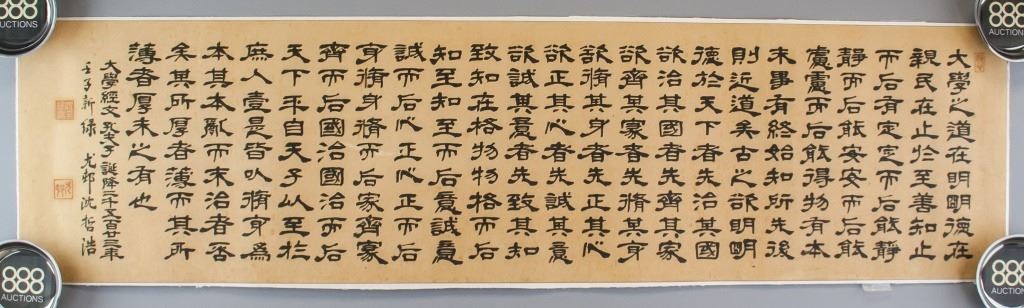 大學之道在明明德在
親民在止於至善知止
而后有定定而后能靜
靜而后能安安而后能
慮慮而后能得物有本
末事有終始知所先後
則近道矣古之欲明明
德於天下者先治其國
欲治其國者先齊其家
欲齊其家者先脩其身
欲脩其身者先正其心
欲正其心者先誠其意
欲誠其意者先致其知
致知在格物物格而后
知至知至而后意誠意
誠而后心正心正而后
身脩身脩而后家齊家
齊而后國治國治而后
天下平自天子以至於
庶人壹是皆以脩身為
本其本亂而末治者否
矣其所厚者薄而其所
薄者厚未之有也
大學經文孔夫子誕降二千五百廿三年
壬子新綠 邨沈哲浩
888
AUCTIONS
888
AUCTIONS
888
AUCTIONS
888
AUCTIONS